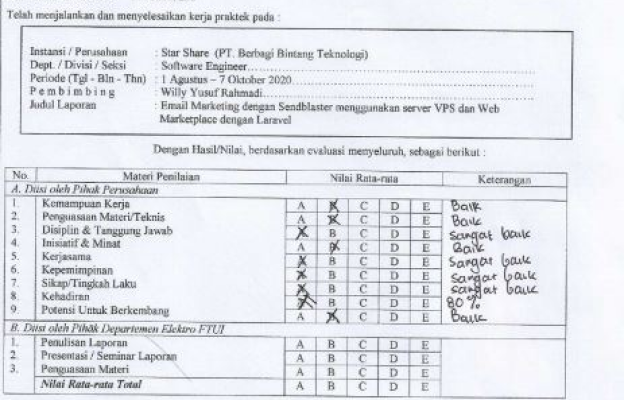 Telah menjalankan dan menyelesaikan kerja praktek pada :
Instansi / Perusahaan : Star Share (PT. Berbagi Bintang Teknologi)
Dept. / Divisi / Seksi : Software Engineer
Periode (Tgl - Bln - Thn) : 1 Agustus – 7 Oktober 2020
Pembimbing : Willy Yusuf Rahmadi
Judul Laporan : Email Marketing dengan Sendblaster menggunakan server VPS dan Web
Marketplace dengan Laravel
Dengan Hasil/Nilai, berdasarkan evaluasi menyeluruh, sebagai berikut :
No. Materi Penilaian Nilai Rata-rata Keterangan
A. Diisi oleh Pihak Perusahaan
1. Kemampuan Kerja A B C D E Baik
2. Penguasaan Materi/Teknis A B C D E Baik
3. Disiplin & Tanggung Jawab A B C D E Sangat baik
4. Inisiatif & Minat A B C D E Baik
5. Kerjasama A B C D E Sangat baik
6. Kepemimpinan A B C D E Sangat baik
7. Sikap/Tingkah Laku A B C D E Sangat baik
8. Kehadiran A B C D E 80%
9. Potensi Untuk Berkembang A B C D E Baik
B. Diisi oleh Pihak Departemen Elektro FTUI
1. Penulisan Laporan A B C D E
2. Presentasi / Seminar Laporan A B C D E
3. Penguasaan Materi A B C D E
Nilai Rata-rata Total A B C D E